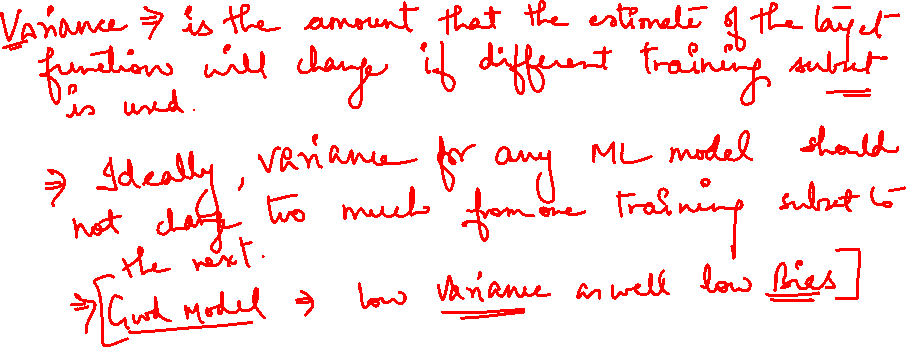 Variance ⇒ is the amount that the estimate of the target
function will change if different training subset
is used.
⇒ Ideally, variance for any ML model should
not change too much from one training subset to
the next.
⇒ [Good Model ⇒ low variance as well low Bias]